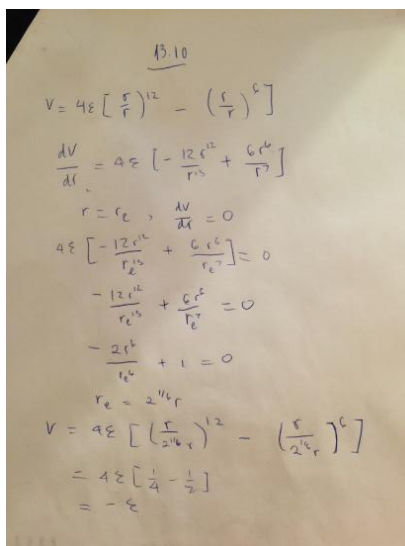 13.10
V = 4ε [(r/r)^12 - (r/r)^6]
dV/dr = 4ε [-12r^12/r^13 + 6r^6/r^7]
r = r_e , dV/dr = 0
4ε [-12r^12/r_e^13 + 6r^6/r_e^7] = 0
-12r^12/r_e^13 + 6r^6/r_e^7 = 0
-2r^6/r_e^6 + 1 = 0
r_e = 2^1/6 r
V = 4ε [(r/2^1/6 r)^12 - (r/2^1/6 r)^6]
= 4ε [1/4 - 1/2]
= -ε